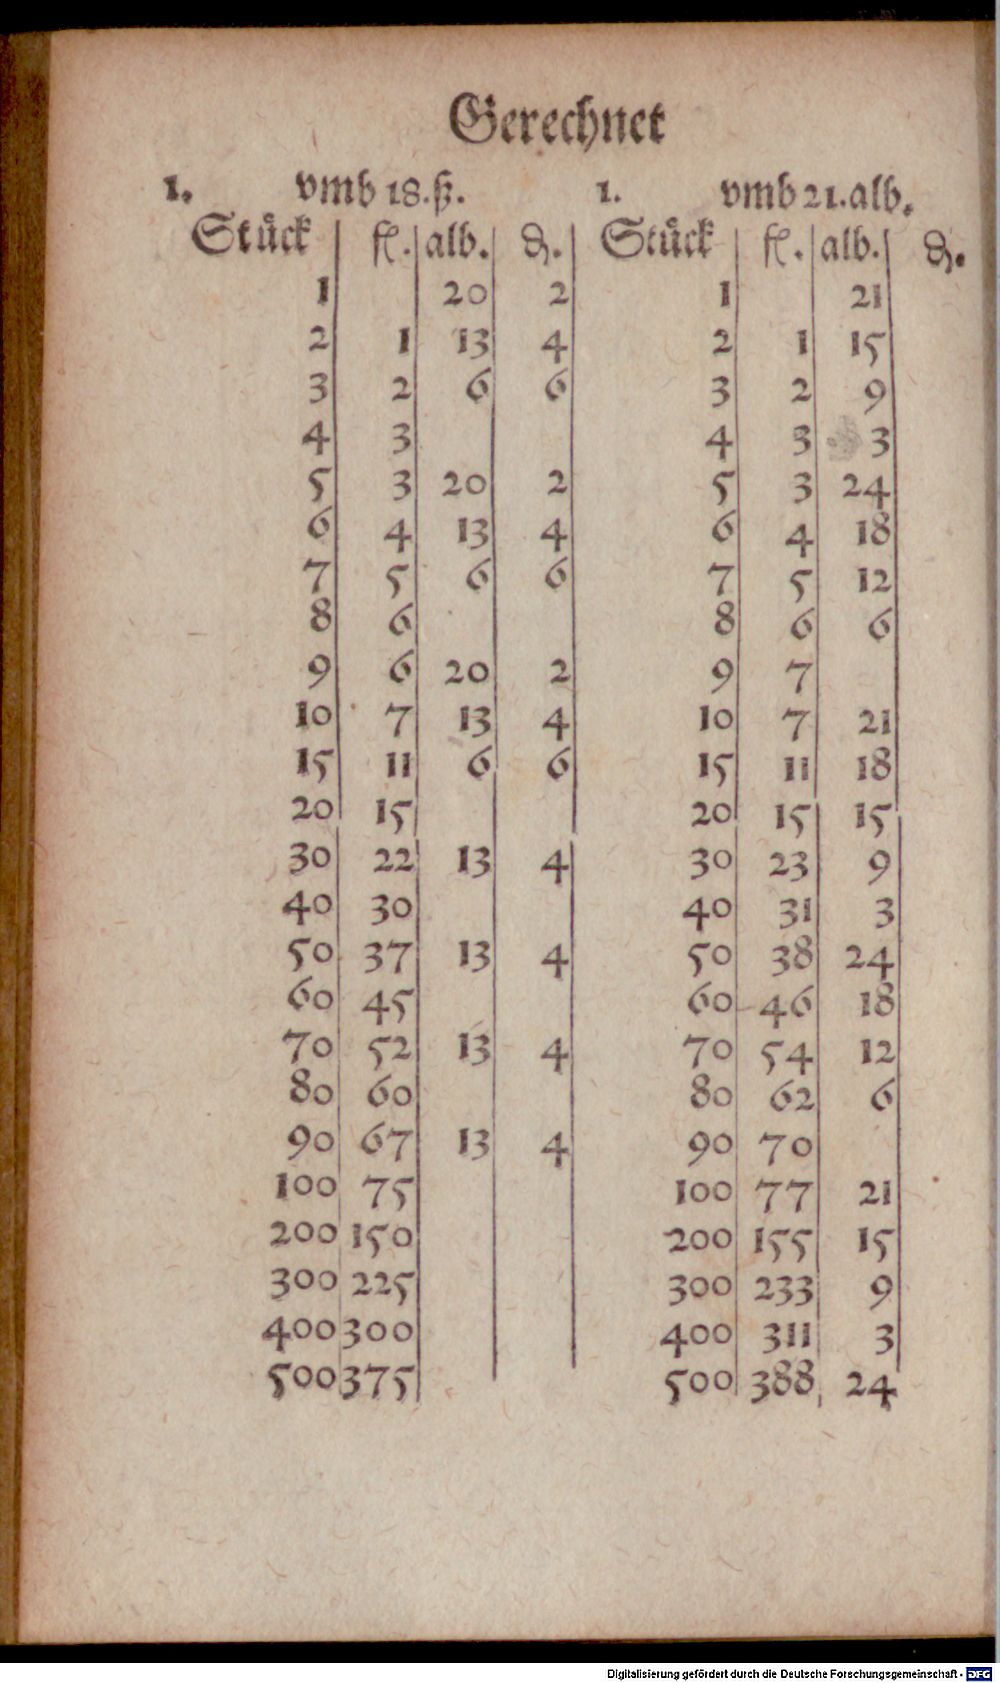 Gerechnet
1. vmb 18.ß. 1. vmb 21.alb.
Stuͤck fl. alb. ₰. Stuͤck fl. alb. ₰.
1 20 2 1 21
2 1 13 4 2 1 15
3 2 6 6 3 2 9
4 3 4 3 3
5 3 20 2 5 3 24
6 4 13 4 6 4 18
7 5 6 6 7 5 12
8 6 8 6 6
9 6 20 2 9 7
10 7 13 4 10 7 21
15 11 6 6 15 11 18
20 15 20 15 15
30 22 13 4 30 23 9
40 30 40 31 3
50 37 13 4 50 38 24
60 45 60 46 18
70 52 13 4 70 54 12
80 60 80 62 6
90 67 13 4 90 70
100 75 100 77 21
200 150 200 155 15
300 225 300 233 9
400 300 400 311 3
500 375 500 388 24
Digitalisierung gefördert durch die Deutsche Forschungsgemeinschaft - DFG